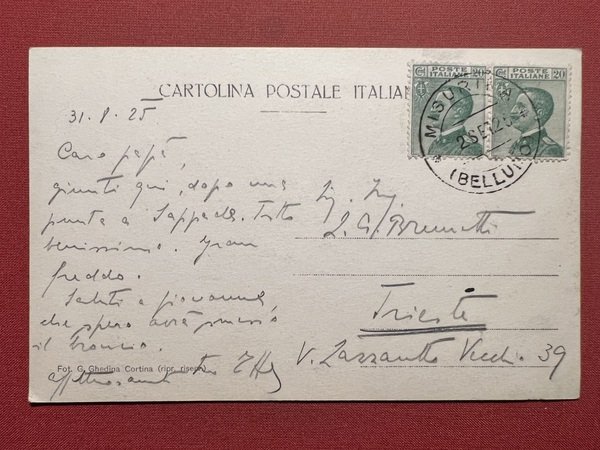 CARTOLINA POSTALE ITALIANA
POSTE ITALIANE 20
POSTE ITALIANE 20
MISURINA
(BELLUNO)
31.8.25
Caro papà,
giunti qui, dopo una
punta a Sappada. Tutto
benissimo. Gran
freddo.
Saluti a Giovanna,
che spero avrà
il
affettuosamente tuo
Sig. Ing.
G. Brunetti
Trieste
V. Lazzaretto Vecchio 39
Fot. G. Ghedina Cortina (ripr. riserv.)